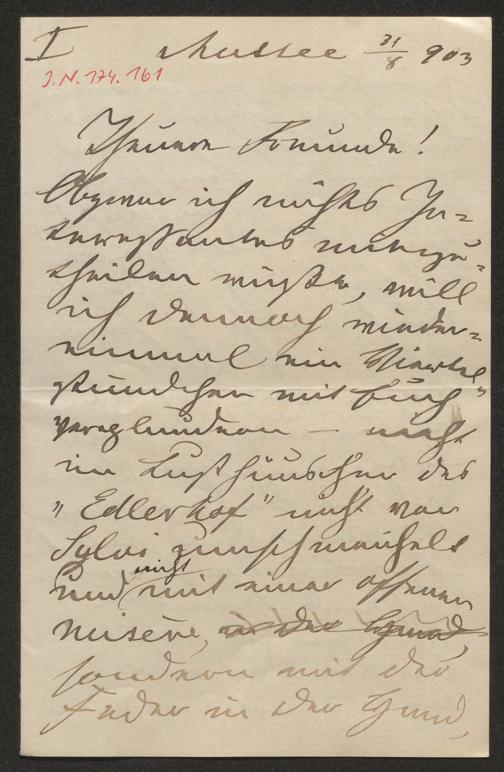 I Aussee 31/8 903
I.N. 174.161
Theuere Freunde!
Obzwar ich nichts In-
teressantes mitzu-
theilen wüßte, will
ich dennoch wieder-
einmal ein Viertel-
stündchen mit Euch
verplaudern – nicht
im Lusthäuschen des
"Edlerhof" nicht von
Sylvi umschmeichelt
und nicht mit einer offenen
misère, in der Hand,
sondern mit der
Feder in der Hand,